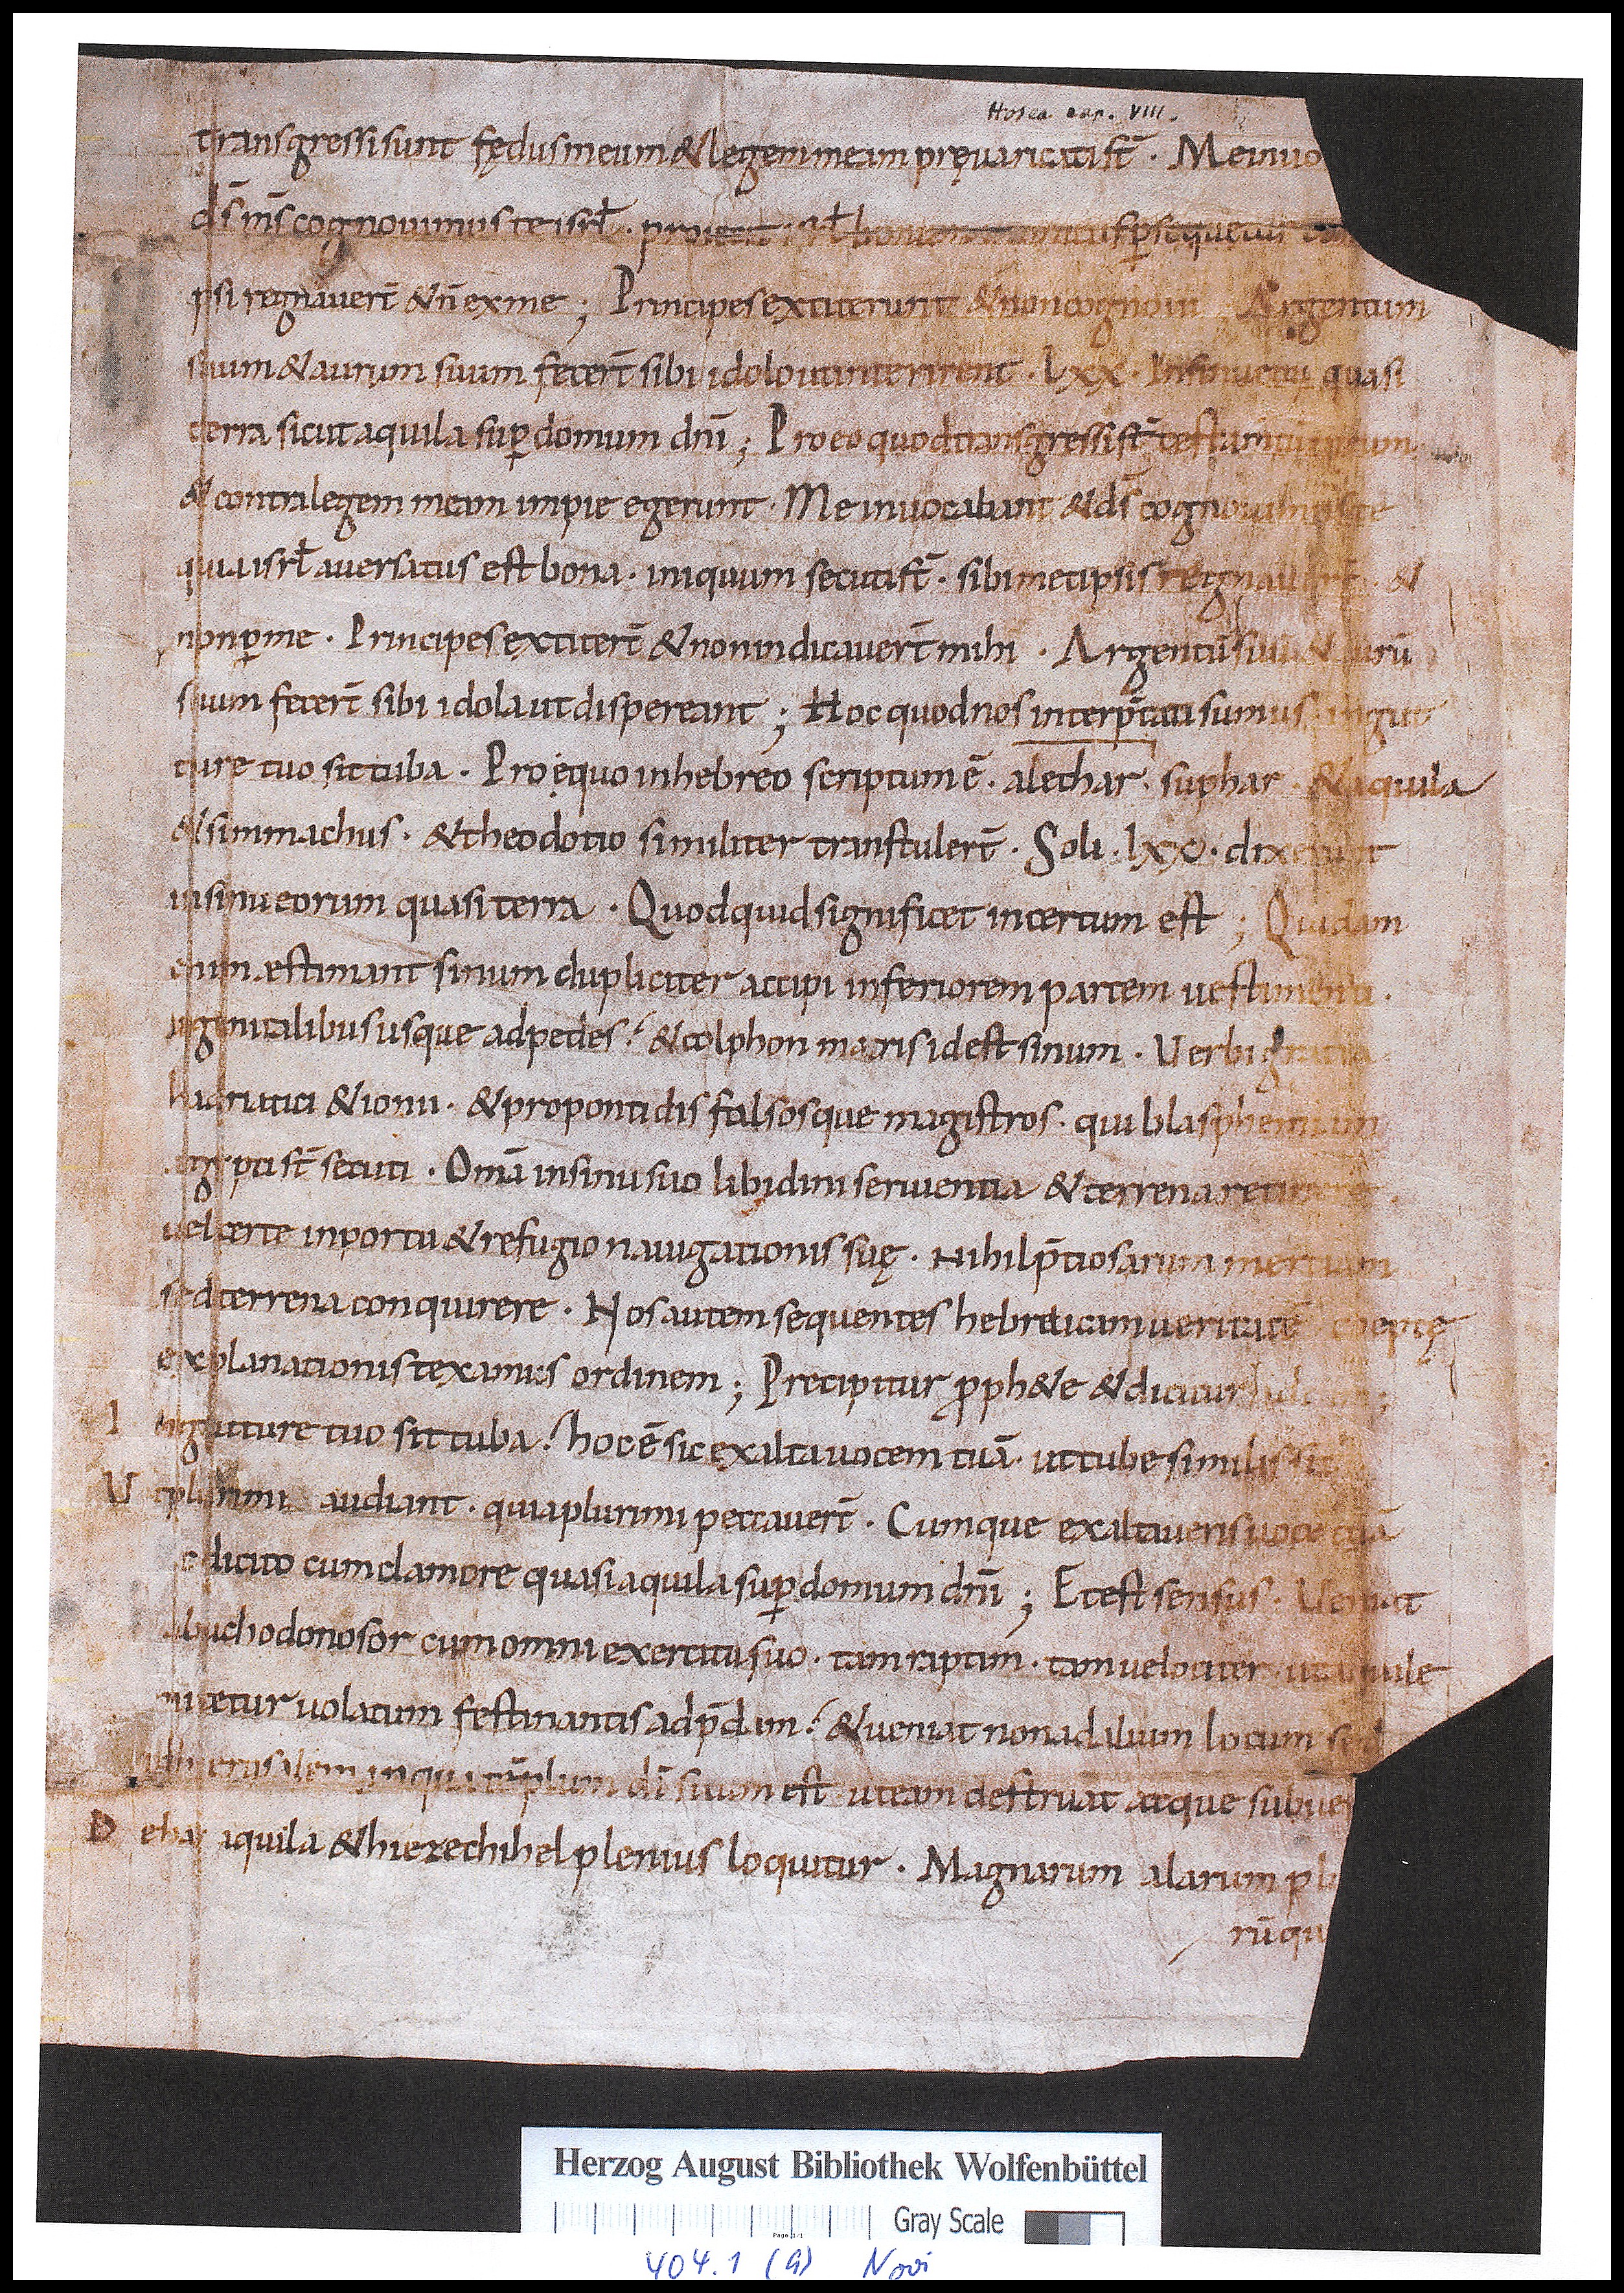 Hosea cap. VIII.
transgressi sunt fędus meum & legem meam pręuaricati st̄ · Me inuo
ds̄ ms̄ cognouimus te isrł · proiecit isrł bonum inimicus ꝑsequetur
psi regnauer̄t & n̄ ex me ; Principes extiterunt & non cognoui Argentum
suum & aurum suum fecer̄t sibi idolo ut interirent · lxx · In sinu eoꝝ quasi
terra sicut aquila suꝑ domum dn̄i ; Pro eo quod transgressi st̄ testamtū meum
& contra legem meam impie egerunt · Me inuocabant & ds̄ cognouimus te
quia isrł auersatus est bona · iniquum secuti st̄ · sibimetipsis regnauer̄t · &
non ꝑ me · Principes extiter̄t & non indicauer̄t mihi · Argentū suū & aurū
suum fecer̄t sibi idola ut dispereant ; Hoc quod nos interp̄tati sumus in gut
ture tuo sit tuba · Pro ęquo in hebreo scriptum ē · alechar · suphar · & aquila
& simmachus · & theodotio similiter transtuler̄t · Soli · lxx · dixerunt
in sinu eorum quasi terra · Quod quid significet incertum est ; Quidam
enim æstimant sinum dupliciter accipi inferiorem partem uestimenti ·
a genitalibus usque ad pedes · & colphon maris id est sinum · Uerbi gratia
hadriatici & ionii · & propontidis falsosque magistros · qui blasphemiam
egypti st̄ secuti · Omā in sinu suo libidini seruientia & terrena retinere ·
uel certe in portu & refugio nauigationis suę · Nihil p̄tiosarum mercium
sed terrena conquirere · Nos autem sequentes hebraicam ueritatē coeptę
explanationis texamus ordinem ; Precipitur ꝓph&e & dicitur
I n gutture tuo sit tuba · hoc ē sic exalta uocem tuā · ut tube similis sit
U t plurimi audiant · quia plurimi peccauer̄t · Cumque exaltaueris uocē tuā
dicito cum clamore quasi aquila suꝑ domum dn̄i ; Et est sensus · Ueniat
abuchodonosor cum omni exercitu suo · tam raptim · tam uelociter · ut aquile
mitetur uolatum festinantis ad p̄dam · & ueniat non ad alium locum sed
ad hierusalem in qua tēplum dī siuum est ut eam destruat atque subuer
D e hac aquila & hiezechihel plenius loquitur · Magnarum alarum pl
rū qu
Herzog August Bibliothek Wolfenbüttel
Gray Scale
404.1 (9) Novi